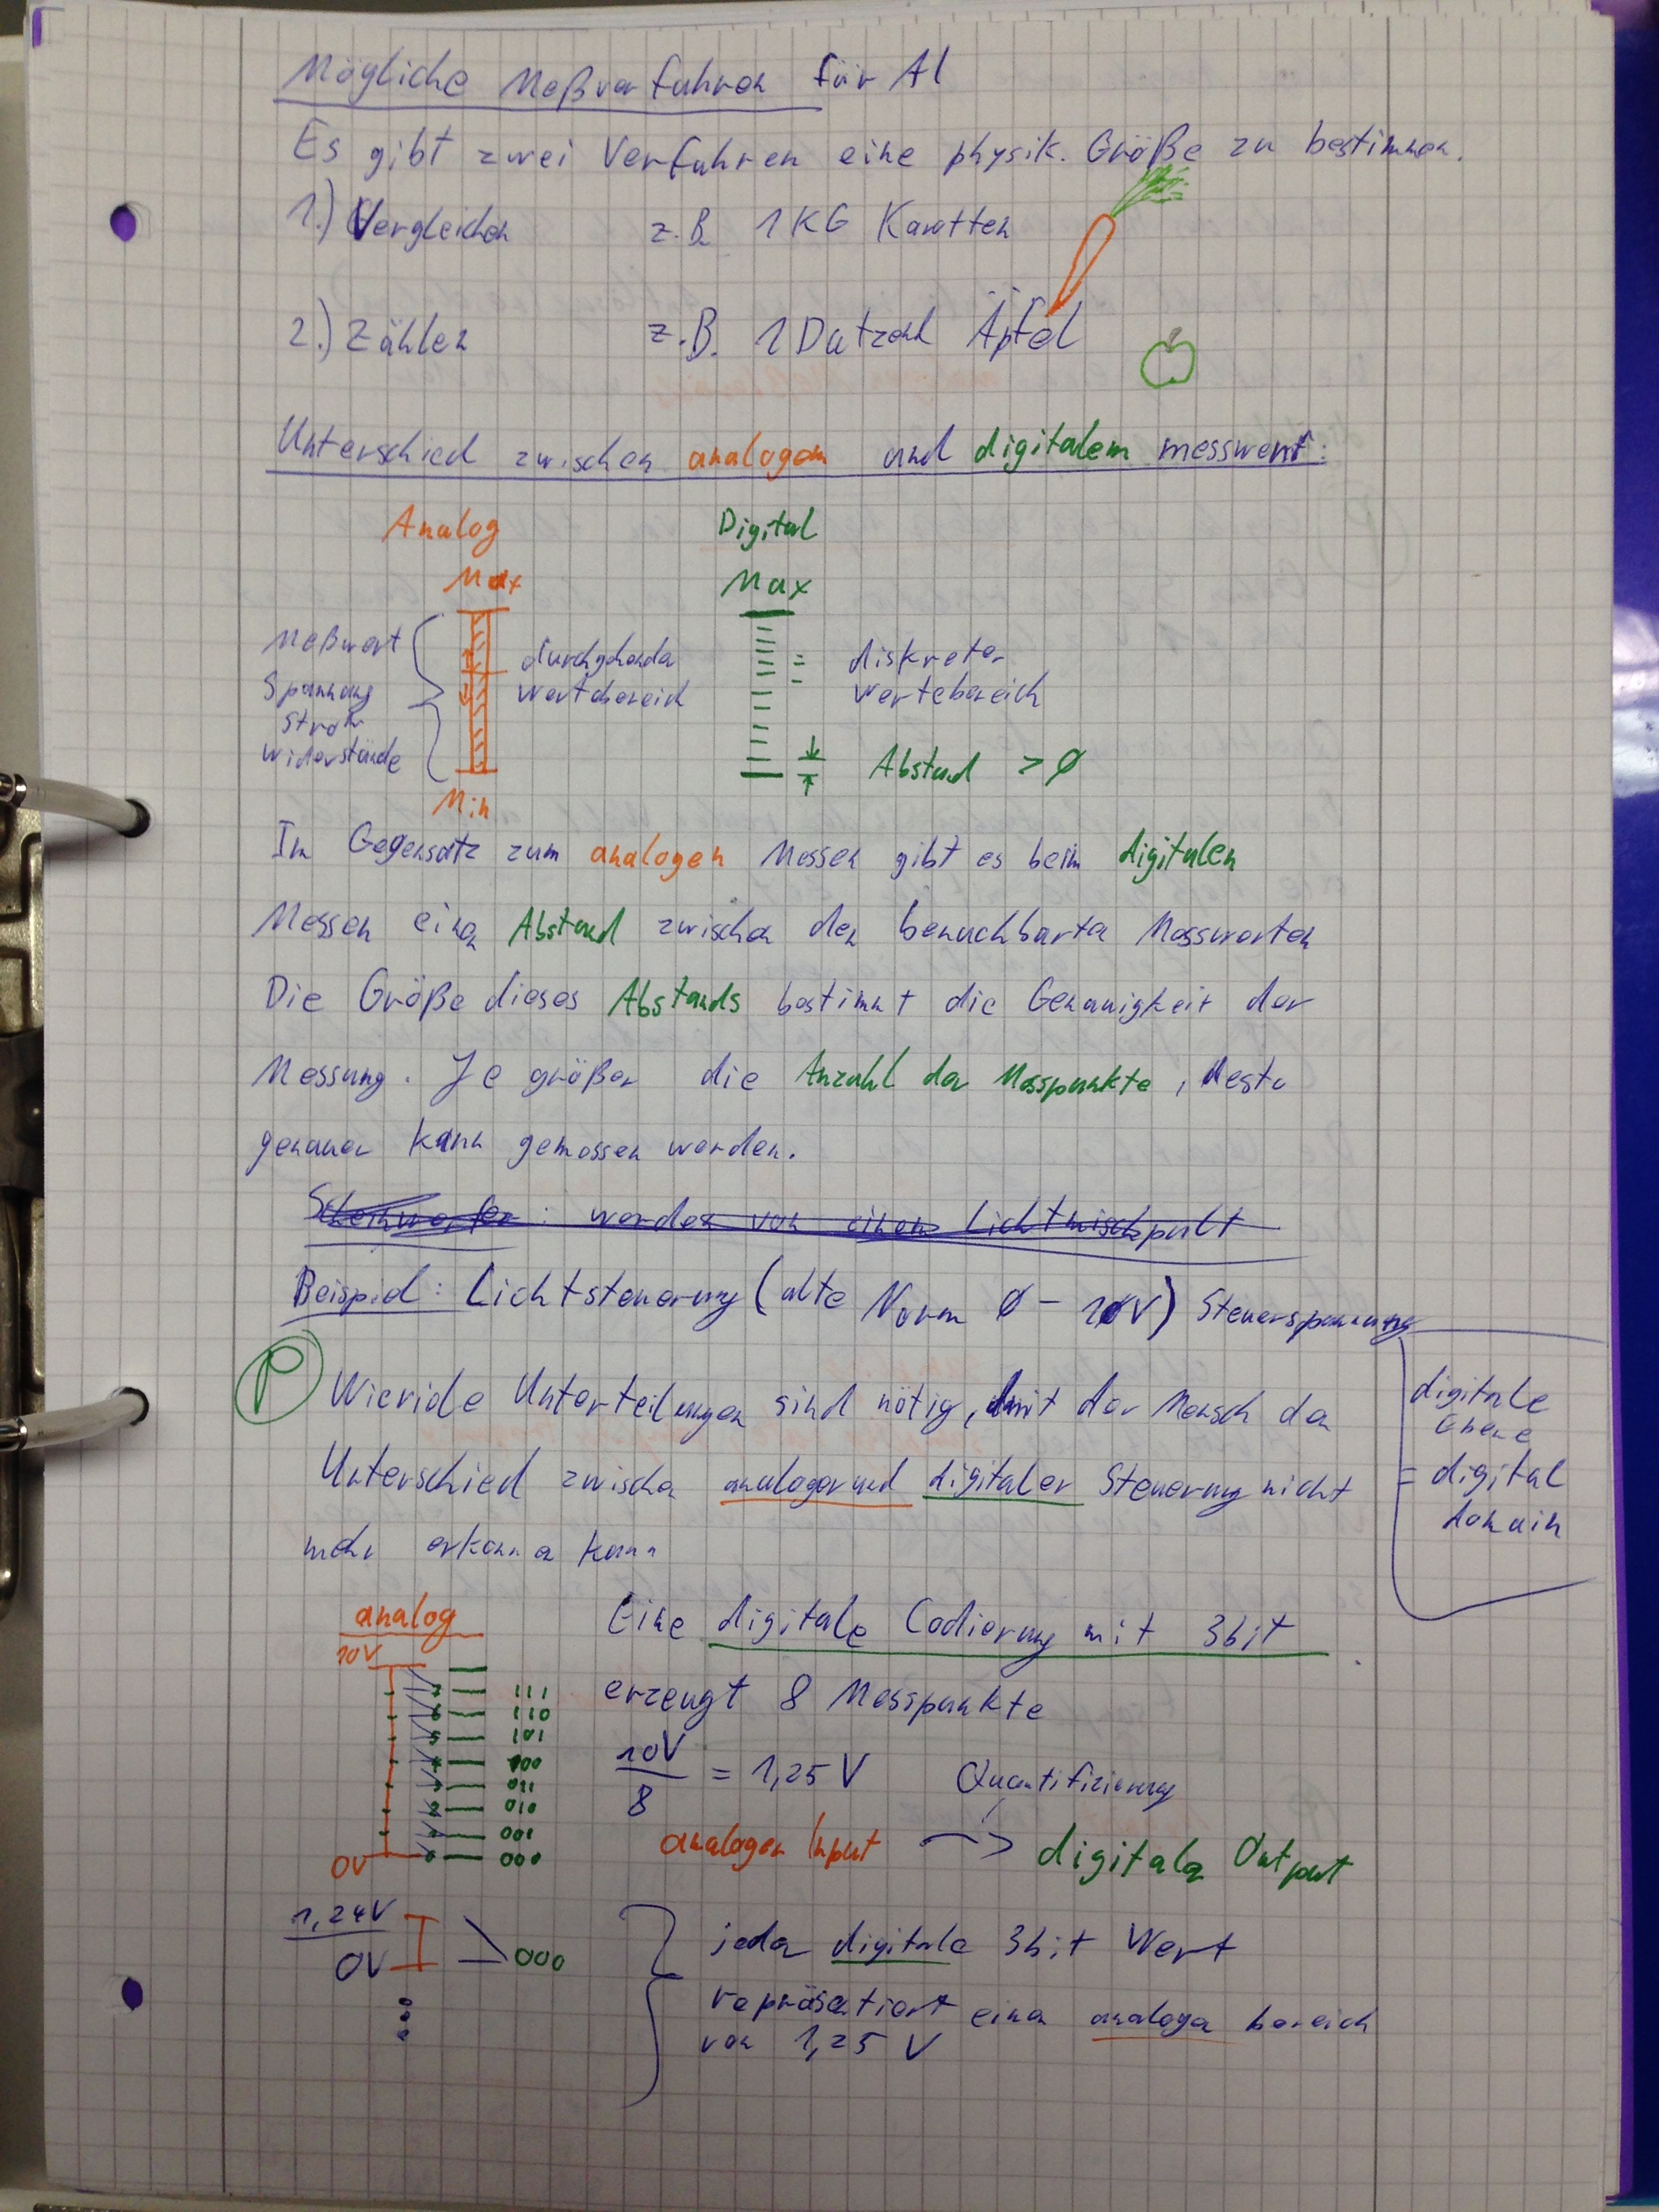 Mögliche Meßverfahren für AI
Es gibt zwei Verfahren eine physik. Größe zu bestimmen.
1.) Vergleichen z.B. 1 KG Karotten
2.) Zählen z.B. 1 Dutzend Äpfel
Unterschied zwischen analogem und digitalem messwert:
Analog Digital
Max Max
Meßwert
Spannung
Strom
Widerstände
durchgehender
Wertebereich
diskreter
Wertebereich
Abstand > 0
Min
Im Gegensatz zum analogen Messen gibt es beim digitalen
Messen einen Abstand zwischen den benachbarten Messwerten
Die Größe dieses Abstands bestimmt die Genauigkeit der
Messung. Je größer die Anzahl der Messpunkte, desto
genauer kann gemessen werden.
Scheinwerfer: werden von einem Lichtmischpult
Beispiel: Lichtsteuerung (alte Norm 0 - 10V) Steuerspannung
P Wieviele Unterteilungen sind nötig, damit der Mensch den
Unterschied zwischen analoger und digitaler Steuerung nicht
mehr erkennen kann
digitale
Ebene
= digital
domain
analog
10V
7 111
6 110
5 101
4 100
3 011
2 010
1 001
0V 0 000
Eine digitale Codierung mit 3bit
erzeugt 8 Messpunkte
10V / 8 = 1,25 V Quantifizierung
analoger Input -> digitaler Output
1,24V
0V 000
jeder digitale 3bit Wert
repräsentiert einen analogen bereich
von 1,25 V